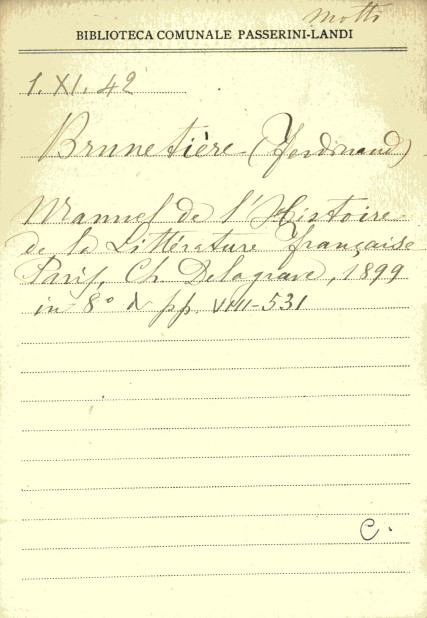 Motti
BIBLIOTECA COMUNALE PASSERINI-LANDI
1. XI. 42
Brunetière (Ferdinand)
Manuel de l'Histoire
de la Littérature française
Paris, Ch. Delagrave, 1899
in 8° di pp. VIII-531
C.